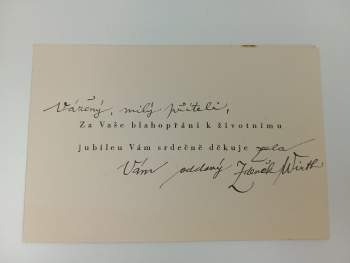 Vážený, milý příteli,
Za Vaše blahopřání k životnímu
jubileu Vám srdečně děkuje
Vám oddaný Zdeněk Wirth